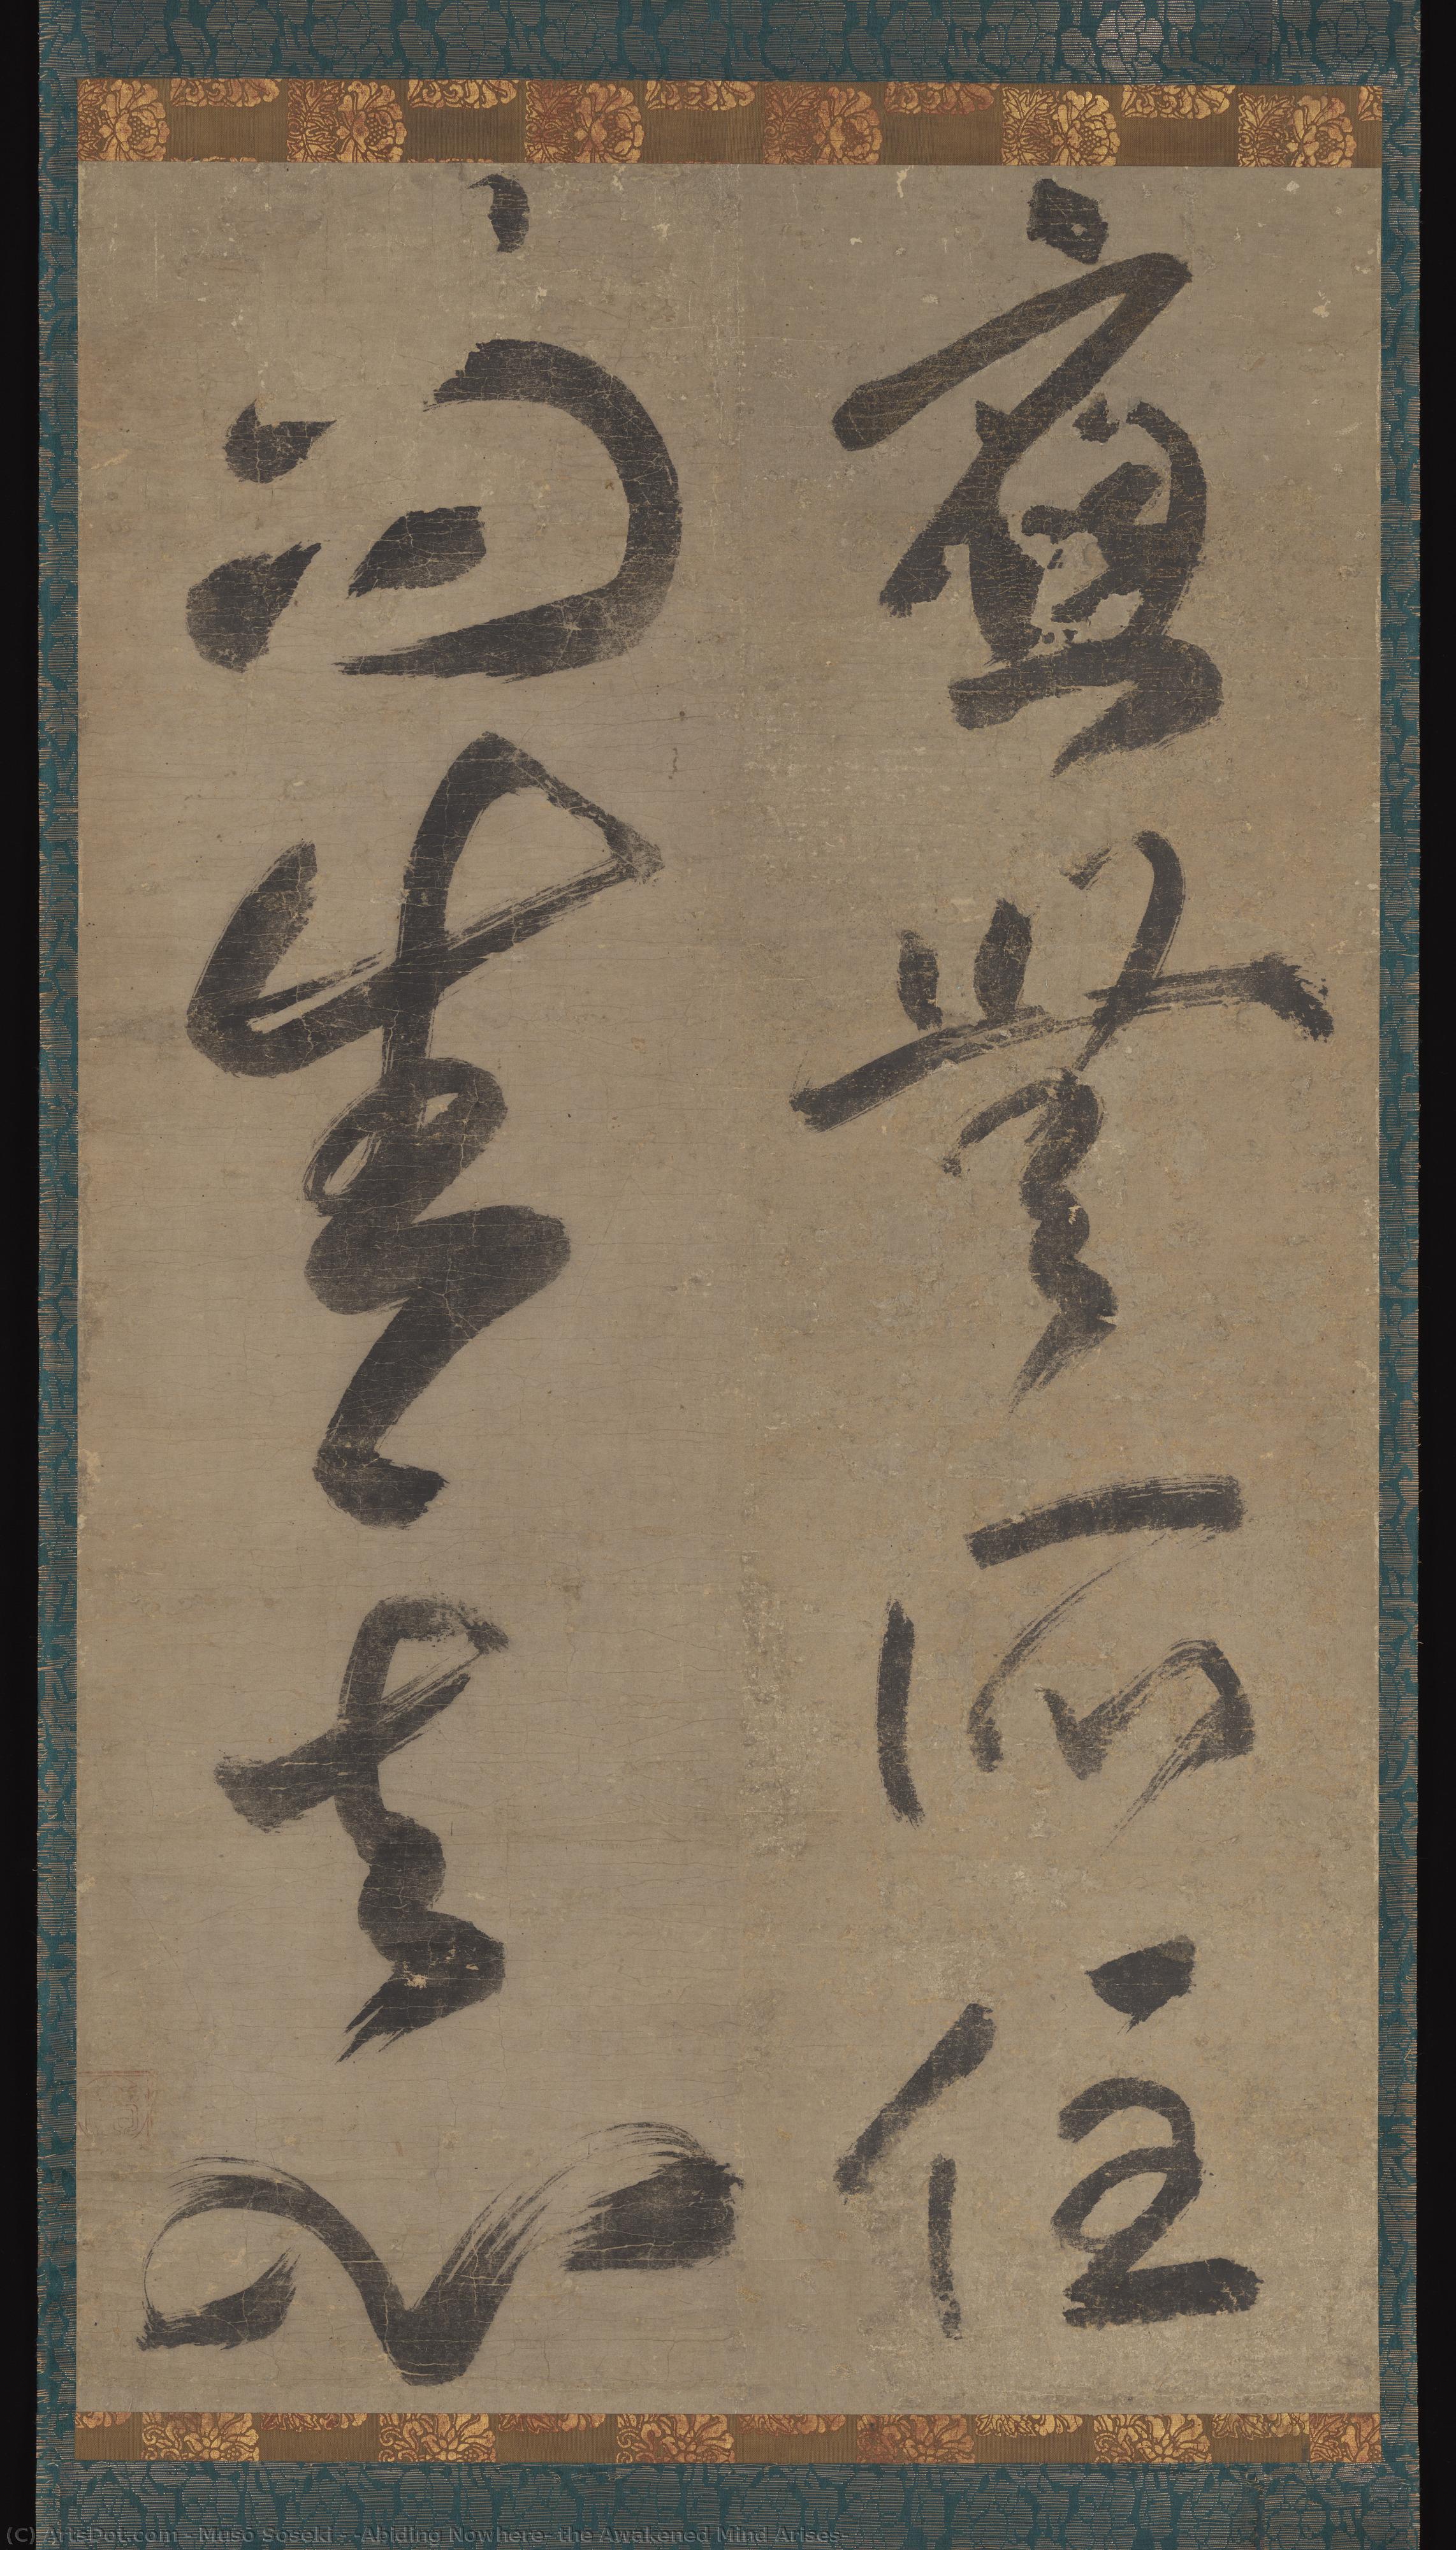 應無所住
而生其心
(C) ArtsDot.com - Musō Soseki - -Abiding Nowhere- the Awakened Mind Arises-